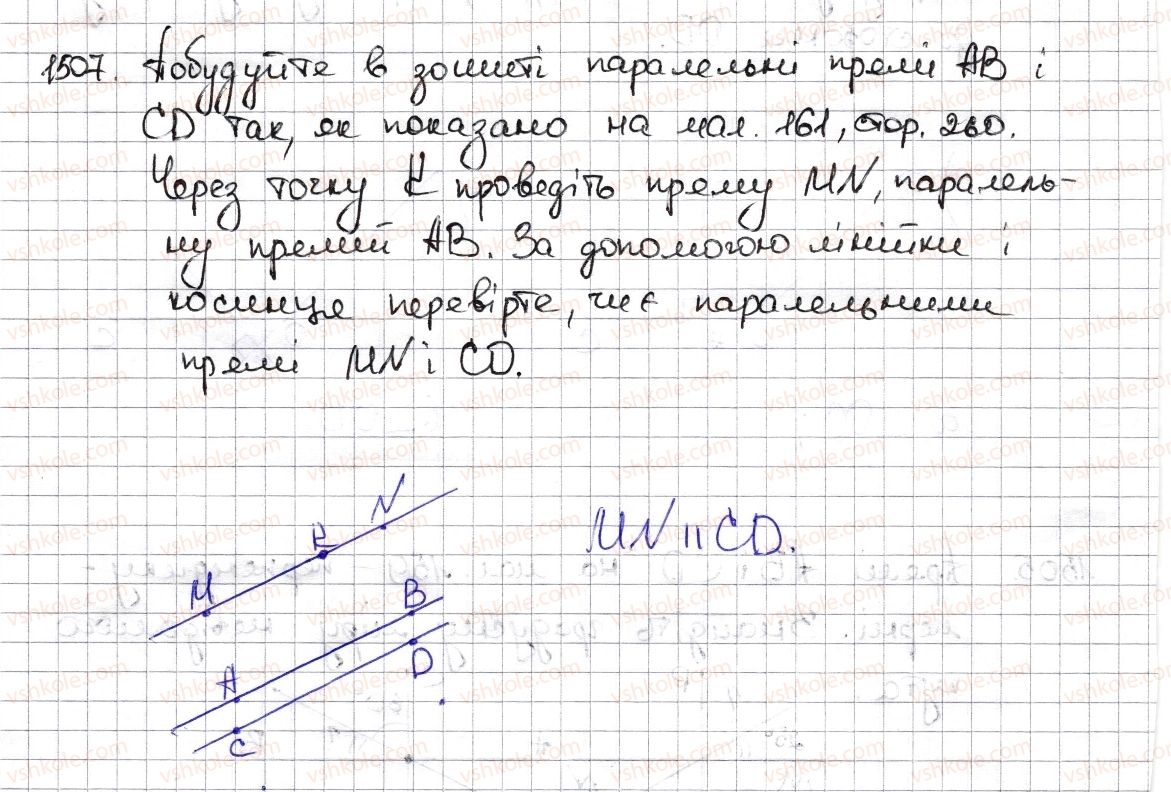 1507. Побудуйте в зошиті паралельні прямі AB і
CD так, як показано на мал. 161, стор. 260.
Через точку K проведіть пряму MN, паралель-
ну прямій AB. За допомогою лінійки і
косинця перевірте, чи є паралельними
прямі MN і CD.
N
K
MN || CD.
M
B
D
A
C
vshkole.com